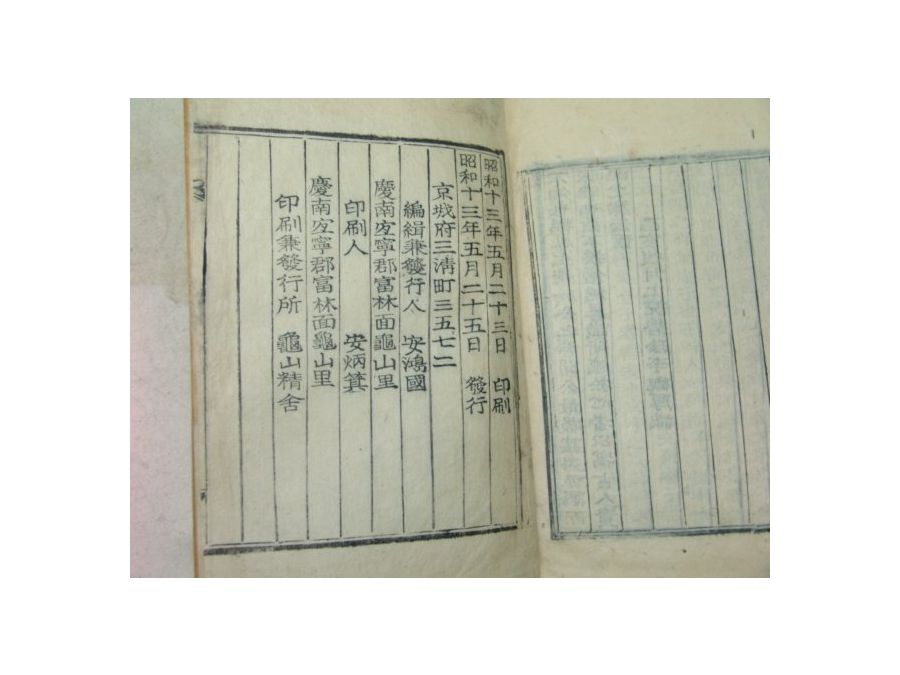 昭和十三年五月二十三日 印刷
昭和十三年五月二十五日 發行
京城府三淸町三五七二
編緝兼發行人 安鴻國
慶南宐寧郡富林面龜山里
印刷人 安炳箕
慶南宐寧郡富林面龜山里
印刷兼發行所 龜山精舍